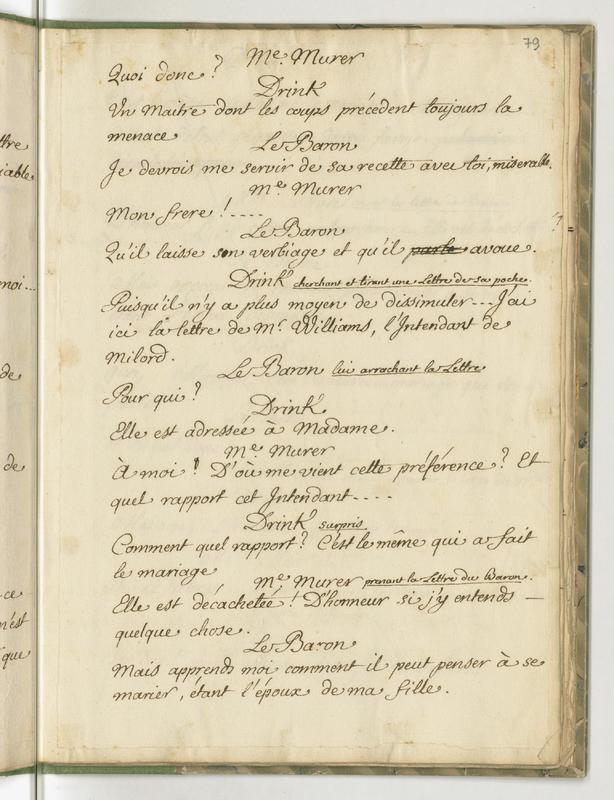 79
Me. Murer
Quoi donc ?
Drink
Un Maitre dont les coups précédent toujours la
menace
Le Baron
Je devrois me servir de sa recette avec toi, miserable.
Me. Murer
Mon frere ! ----
Le Baron
Qu'il laisse son verbiage et qu'il parle avoue.
Drink cherchant et tirant une Lettre de sa poche.
Puisqu'il n'y a plus moyen de dissimuler --- J'ai
ici la lettre de Mr. Williams, l'Intendant de
Milord.
Le Baron lui arrachant la Lettre
Pour qui ?
Drink
Elle est adressée à Madame.
Me. Murer
À moi ! D'où me vient cette préférence ? Et
quel rapport cet Intendant ----
Drink surpris
Comment quel rapport ? C'est le même qui a fait
le mariage
Me. Murer prenant la Lettre du Baron.
Elle est décachetée ! D'honneur si j'y entends —
quelque chose.
Le Baron
Mais apprends moi comment il peut penser à se
marier, étant l'époux de ma fille.
ttre
iable
moi...
de
de
ce
n'est
que